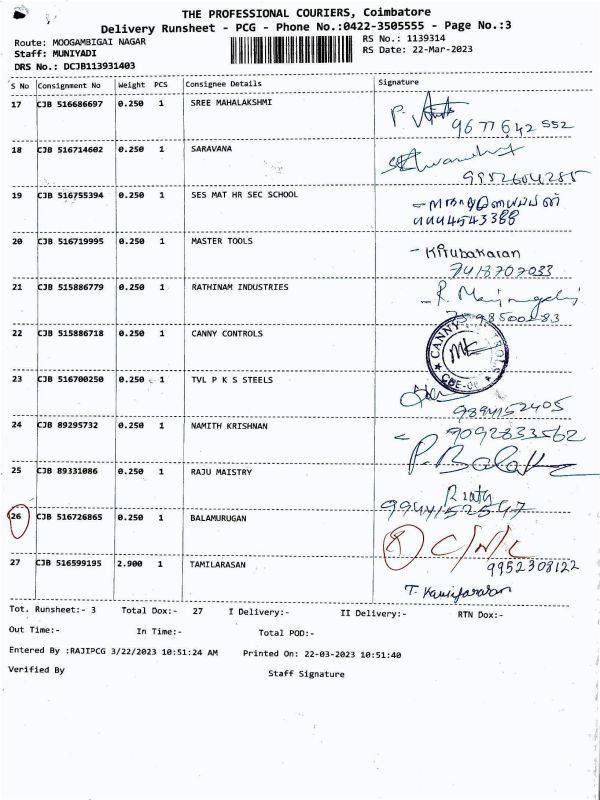 THE PROFESSIONAL COURIERS, Coimbatore
Delivery Runsheet - PCG - Phone No.:0422-3505555 - Page No.:3
Route: MOOGAMBIGAI NAGAR
RS No.: 1139314
Staff: MUNIYADI
RS Date: 22-Mar-2023
DRS No.: DCJB113931403
S No Consignment No Weight PCS Consignee Details Signature
17 CJB 516686697 0.250 1 SREE MAHALAKSHMI P.
9677642552
18 CJB 516714602 0.250 1 SARAVANA
9952604285
19 CJB 516755394 0.250 1 SES MAT HR SEC SCHOOL
20 CJB 516719995 0.250 1 MASTER TOOLS - Kirubakaran
7418707033
21 CJB 515886779 0.250 1 RATHINAM INDUSTRIES - R.
22 CJB 515886718 0.250 1 CANNY CONTROLS
CANNY
23 CJB 516700250 0.250 1 TVL P K S STEELS
9894152405
24 CJB 89295732 0.250 1 NAMITH KRISHNAN 9092833562
25 CJB 89331086 0.250 1 RAJU MAISTRY
26 CJB 516726865 0.250 1 BALAMURUGAN
C/N/L
27 CJB 516599195 2.900 1 TAMILARASAN 9952308122
T.
Tot. Runsheet:- 3 Total Dox:- 27 I Delivery:- II Delivery:- RTN Dox:-
Out Time:- In Time:- Total POD:-
Entered By :RAJIPCG 3/22/2023 10:51:24 AM Printed On: 22-03-2023 10:51:40
Verified By Staff Signature